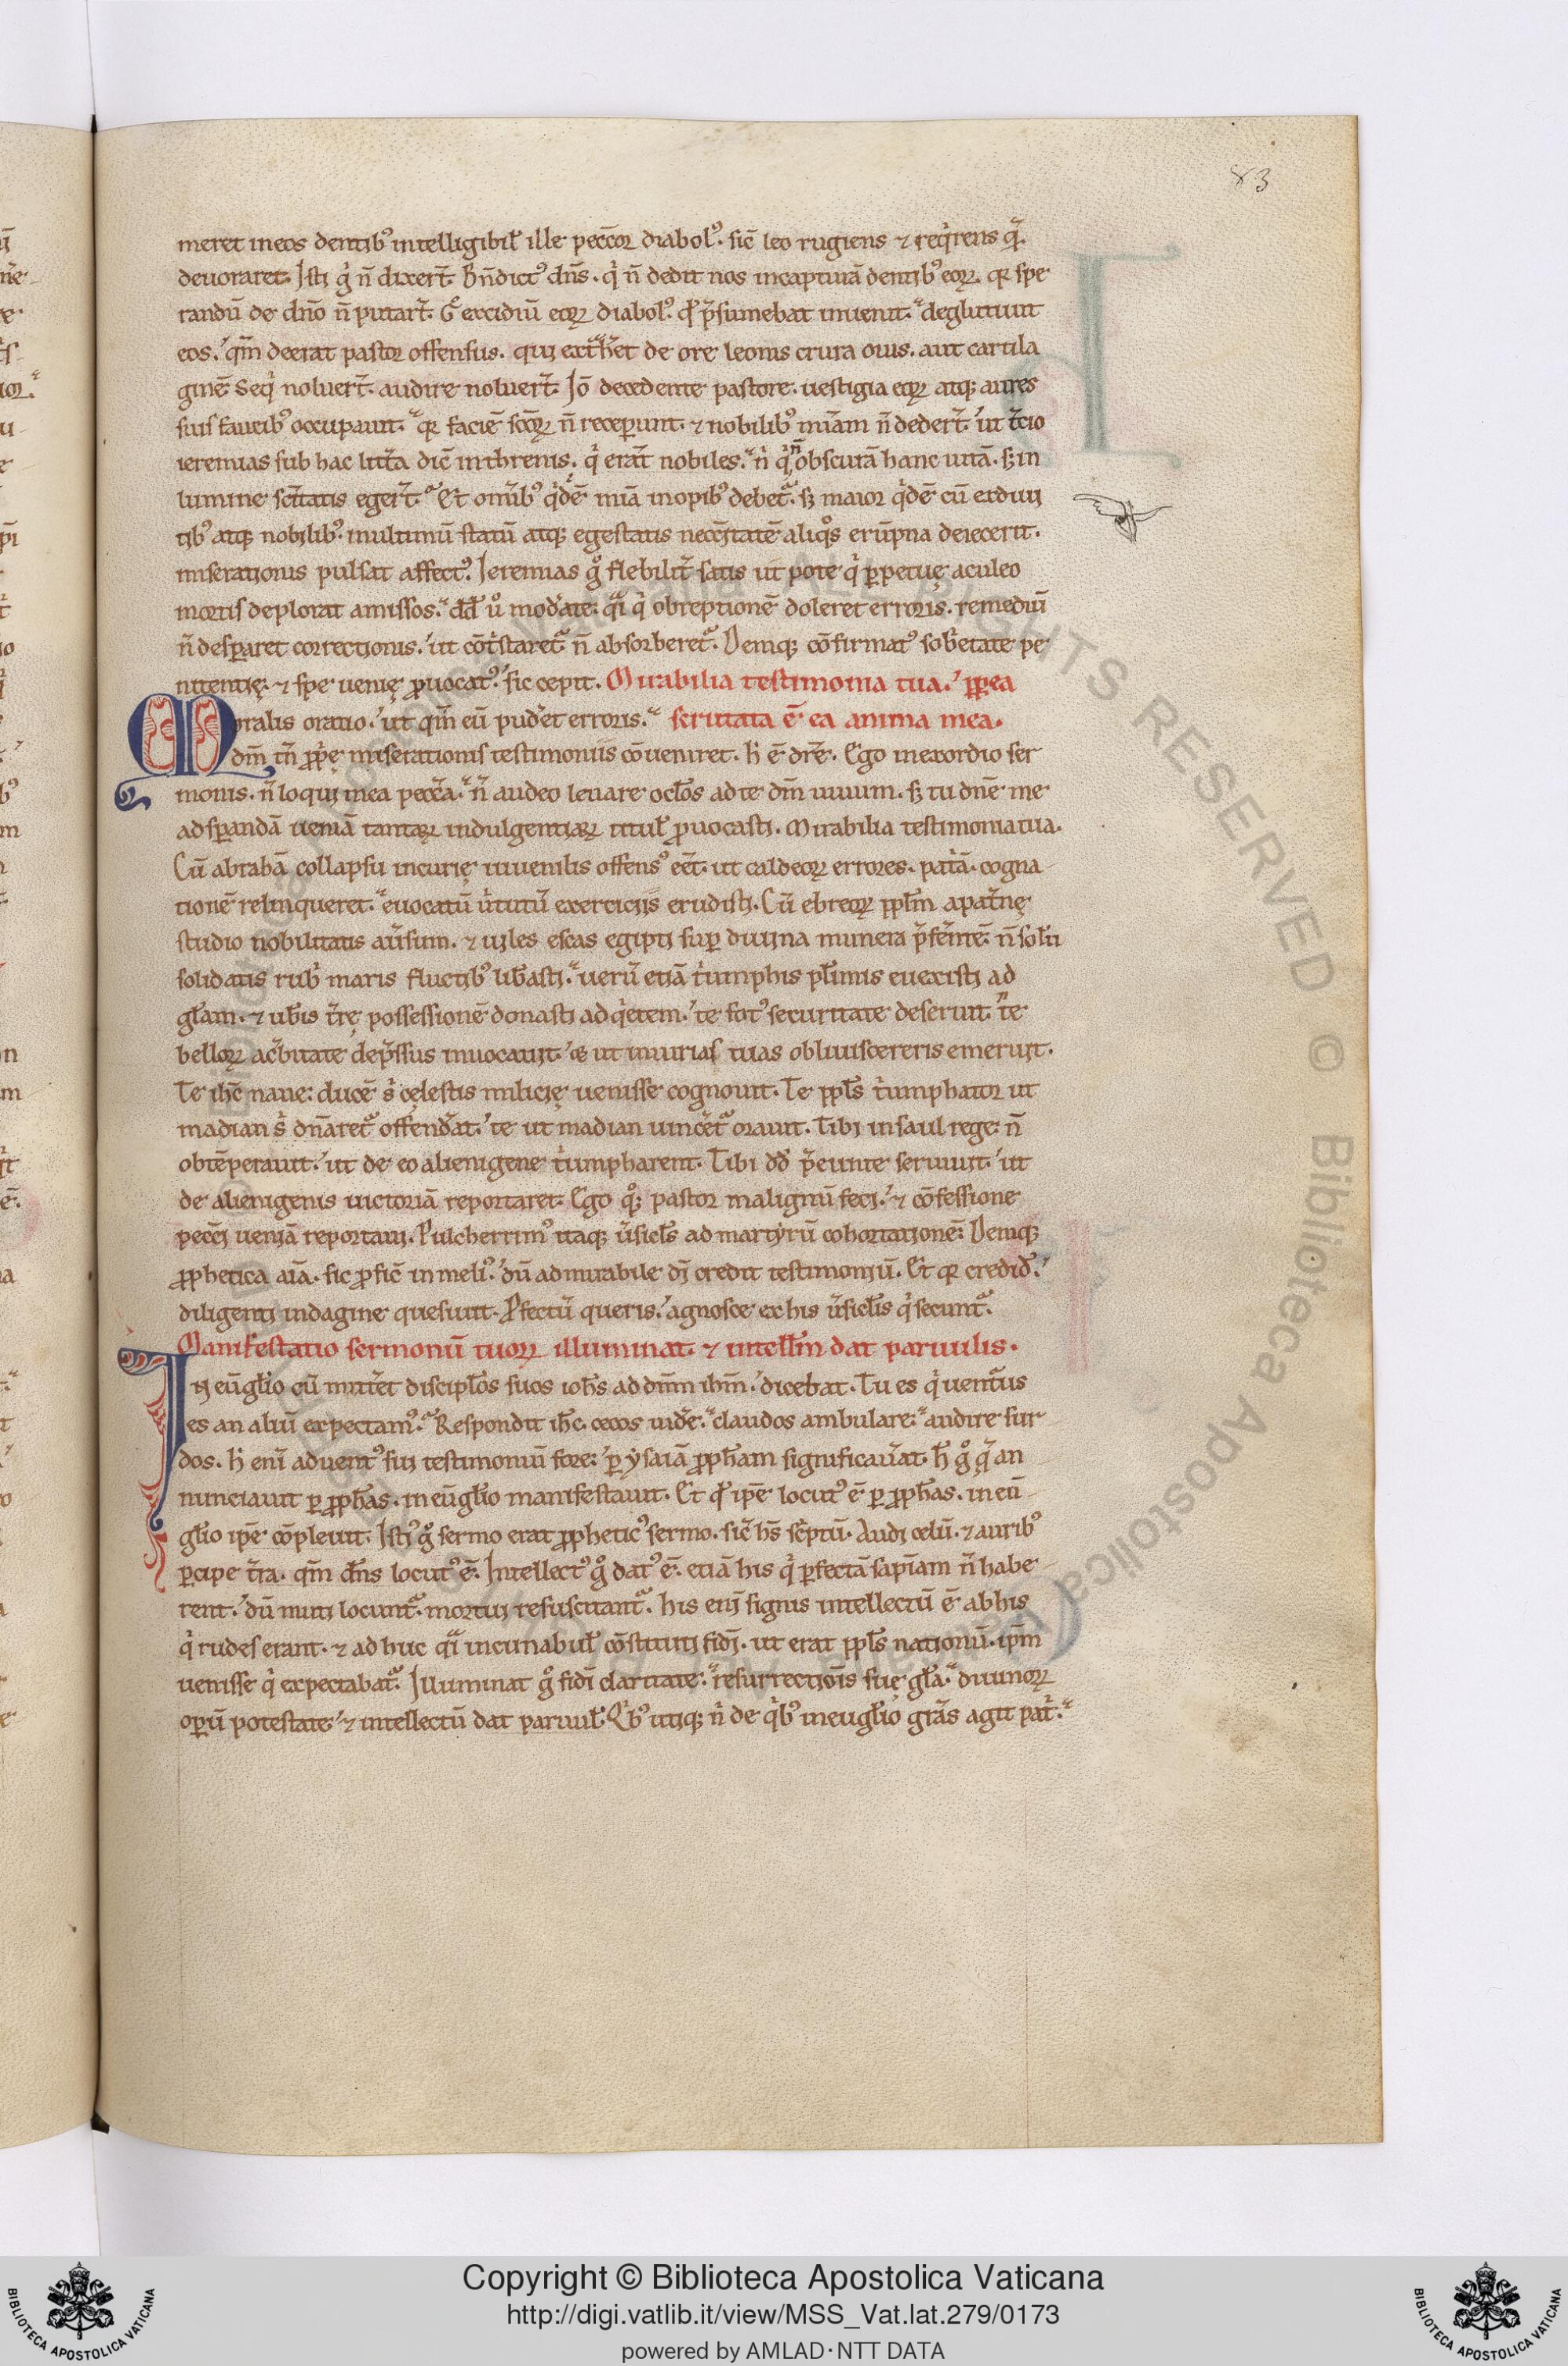 83
meret in eos dentibꝰ intelligibil̉ ille pecc̄oꝝ diabolꝰ. sic̄ leo rugiens ⁊ reqͥrens qͣ̄
devoraret. Isti gͥ n̄ dixer̄t. Bn̄dictꝰ dn̄s. qͥ n̄ dedit nos in captiuā dentibꝰ eoꝝ. qꝛ spe
randū de dn̄o n̄ putar̄t. Gͦ excidiū eoꝝ diabolꝰ. qͩ p̄sumebat inuenit. deglutiuit
eos. qm̄ deerat pastor offensus. qui extͣh̉et de ore leonis crura ouis. aut cartila
ginē Seqͥ noluer̄t. audire noluer̄t. Iō decedente pastore. uestigia eoꝝ atqꝫ aures
suis faucibꝰ occupauit. qꝛ faciē sc̄oꝝ n̄ receperunt. ⁊ nobilibꝰ miam n̄ deder̄t. ut t̉cio
ieremias sub hac litt̄a dic̄ in threnis. qͥ erāt nobiles. nͥ qͥn̄ obscurā hanc uitā. sꝫ in
lumine sc̄itatis eger̄t. Et omībꝰ qͥdē miā inopibꝰ debetᷣ. sꝫ maior qͥdē cū ex diui
tibꝰ atqꝫ nobilibꝰ. in ultimū statū atqꝫ egestatis necc̄itatē aliqͦs erūpna deiecerit.
miserationis pulsat affectꝰ. Ieremias gͦ flebilit̉ satis ut pote qͥ ꝑpetuę aculeo
mortis deplorat amissos. dd̄ uͦ mod̉ate: qͣi qͥ obreptionē doleret erroris. remediū
n̄ desꝑaret correctionis. ut cōtͥstaretᷣ n̄ absorberetᷣ. Deniqꝫ cōfirmatꝰ sobͥetate pe
nitentię. ⁊ spe uenię ꝓuocatꝰ. sic cepit. Mirabilia testimonia tua. ꝓpꝑea
Moralis oratio. ut qm̄ eū pud̉et erroris. scrutata ē ea anima mea.
dm̄ tn̄ ꝓpͥę miserationis testimoniis cōueniret. h̄ ē dr̄e. Ego in exordio ser
monis. n̄ loqui mea pecc̄a. n̄ audeo leuare oclōs ad te dm̄ uiuum. sꝫ tu dn̄e me
ad sꝑandā ueniā tantaꝝ indulgentiaꝝ titul̉ ꝓuocasti. Mirabilia testimonia tua.
Cū abrahā collapsu incurię iuuenilis offensꝰ eēt. ut caldeoꝝ errores. patͥā. cogna
tionē relinqueret. euocatū uͥtutū exerciciis erudisti. Cū ebreoꝝ ppl̄m a pat̉nę
studio nobilitatis au̓sum. ⁊ uiles escas egipti suꝑ diuina munera p̄fer̄tē. n̄ solū
solidatis rubͥ maris fluctibꝰ libasti. uerū etiā tͥumphis pl̄imis euexisti ad
gl̄am. ⁊ ub̉is t̉rę possessionē donasti ad qͥetem. te fotꝰ securitate deseruit. te
belloꝝ ac̉bitate dep̄ssus inuocauit. ⁊ ut iniurias tuas obliuiscereris emeruit.
Te ih̄c naue: ducē sͥ cęlestis milicię uenisse cognouit. Te ppl̄s tͥumphator ut
madian sͥ dn̄aretᷣ offend̉at. te ut madian uinc̉etᷣ orauit. Tibi in saul rege: n̄
obtēperauit. ut de eo alienigene tͥumpharent. Tibi dd̄ p̄eunte seruiuit. ut
de alienigenis uictoriā reportaret. Ego qͦꝫ pastor malignū feci. ⁊ cōfessione
pecc̄i ueniā reportaui. Pulcherrimꝰ itaqꝫ u̓sicl̄s ad martyrū cohortationē: Deniqꝫ
ꝓphetica aīa. sic ꝓfic̄ in meliꝰ. dū admirabile di̅ credit testimoniū. Et qꝛ credid̉.
diligenti indagine quesiuit. Ꝓfectū queris. agnosce ex his u̓siclīs qͥ secuntᷣ.
Manifestatio sermonū tuoꝝ illuminat. ⁊ intell̄m dat paruulis.
In eūgl̄io cū mitt̉et discipl̄os suos ioh̄s ad dn̄m ih̄m. dicebat. Tu es qͥ uentᷣus
es an aliū expectamꝰ. Respondit ih̄c. cecos uid̉e. claudos ambulare. audire sur
dos. h̄ enī aduentꝰ sui testimoniū fore: per ysaiā ꝓph̄am significau̓at. h̄ gͦ qͣ̄ an
nunciauit ꝑ ꝓph̄as. in eūgl̄io manifestauit. Et qͩ ip̄e locutꝰ ē ꝑ ꝓph̄as. in eū
gl̄io ip̄e cōpleuit. Istiꝰ gͦ sermo erat ꝓpheticꝰ sermo. sic̄ hs̄ sc̄ptū. Audi celū. ⁊ auribꝰ
ꝑcipe t̉ra. qm̄ dn̄s locutꝰ ē. Intellectꝰ gͦ datꝰ ē. etiā his qͥ ꝑfectā sapīam n̄ habe
rent. dū muti locuntᷣ. mortui resuscitantᷣ. his enī signis intellectū ē ab his
qͥ rudes erant. ⁊ ad huc qͣi incunabul̉ cōstituti fidi̅. ut erat ppl̄s nationū. ip̄m
uenisse qͥ expectabatᷣ. Illuminat gͦ fidi̅ claritate. resurrectiōis suę gl̄a. diuinoꝝ
oꝑū potestate. ⁊ intellectū dat paruul̉. Qͥbꝰ utiqꝫ nͥ de qͥbꝰ in euglīo grās agit patͥ.
Copyright © Biblioteca Apostolica Vaticana
http://digi.vatlib.it/view/MSS_Vat.lat.279/0173
powered by AMLAD·NTT DATA
BIBLIOTECA APOSTOLICA VATICANA
BIBLIOTECA APOSTOLICA VATICANA